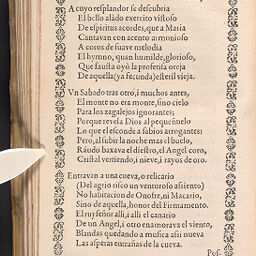 A cuyo resplandor se descubria
El bello alado exercito vistoso
De espiritus acordes, que a Maria
Cantavan con acento armonioso
A coros de suave melodia
El hymno, quan humilde, glorioso,
Que fausta oyò la profetisa oreja
De aquella (ya fecunda) esteril vieja.
Vn Sabado tras otro, i muchos antes,
El monte no era monte, sino cielo
Para los zagalejos ignorantes;
Porque revela Dios al pequeñuelo
Lo que el esconde a sabios arrogantes;
Pero, al subir la noche mas el buelo,
Raudo baxava el diestro, el Angel coro,
Cristal vertiendo, i nieve, i rayos de oro.
Entravan a una cueva, o relicario
(Del agrio risco un venturoso assiento)
No habitacion de Onofre, ni Macario,
Sino de aquella, honor del Firmamento.
El ruyseñor alli, i alli el canario
De un Angel, i otro enamorava el viento,
Blandas quedando a musica assi nueva
Las asperas entrañas de la cueva.
Pos-